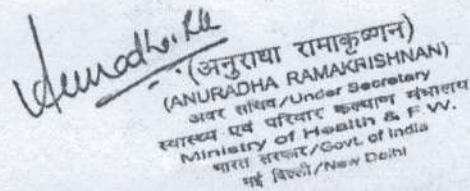 Anuradha.R
(अनुराधा रामाकृष्णन)
(ANURADHA RAMAKRISHNAN)
अवर सचिव/Under Secretary
स्वास्थ्य एवं परिवार कल्याण मंत्रालय
Ministry of Health & F.W.
भारत सरकार/Govt. of India
नई दिल्ली/New Delhi